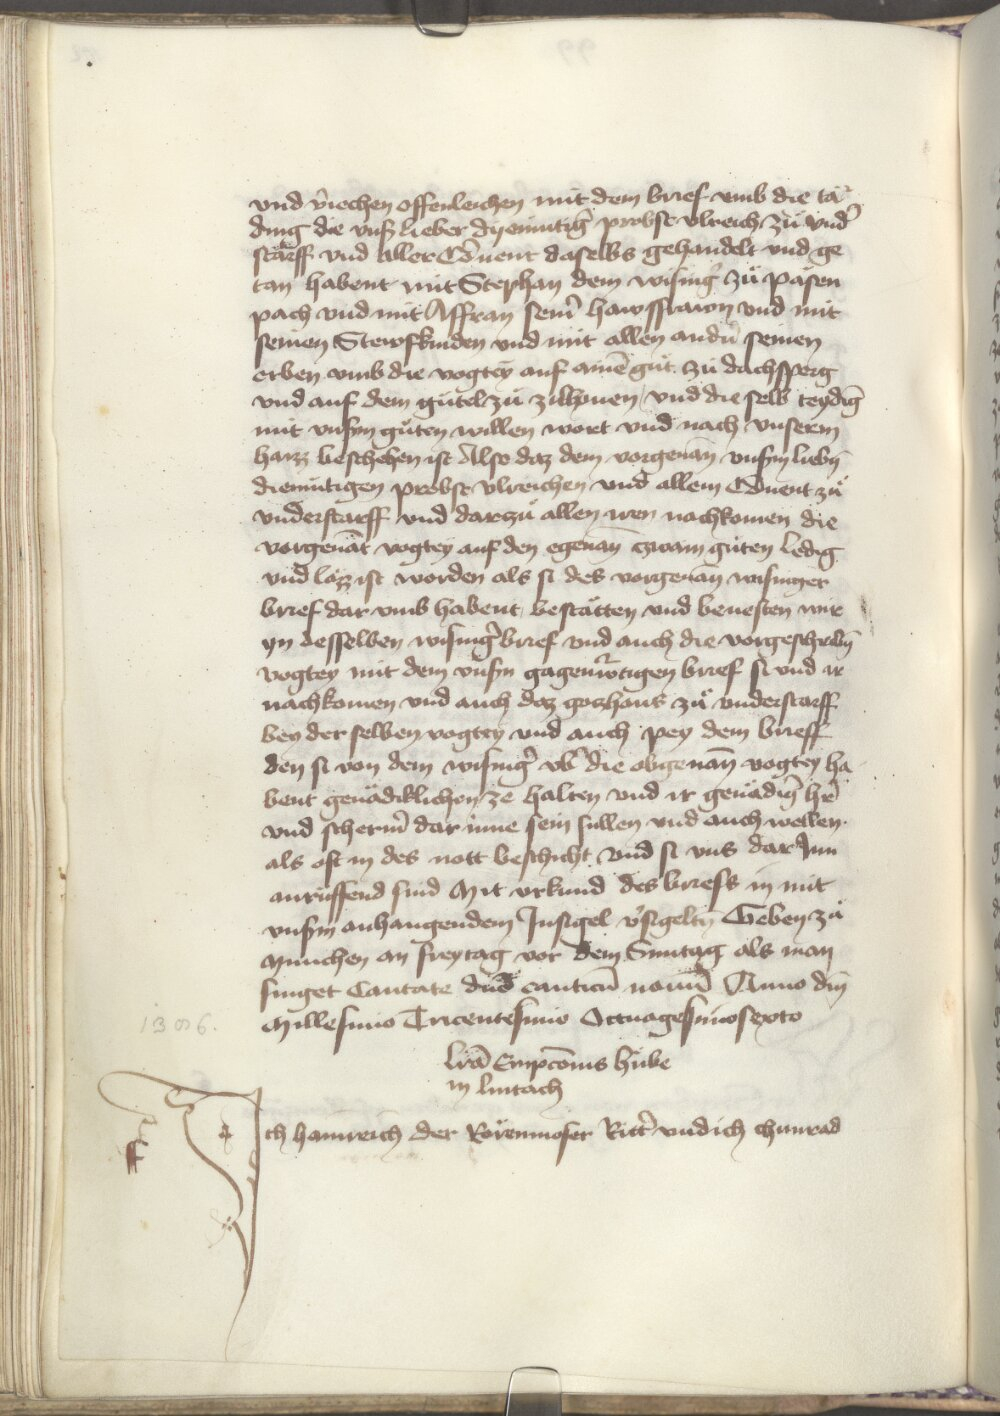 vnd v̄iechen offenleichen mit dem brief vmb die tä
ding die vnser lieber dyemütiḡ probst vlreich zů vnd̄
starff vnd aller Cōuent daselbs gehandelt vnd ge
tan habent mit Stephan dem wisinḡ zů päsen
pach vnd mit Affran sein̄ hawsfrawn vnd mit
seinen Stewfkinden vnd mit allen andn̄ seinen
erben vmb die vogtey auf ainē gůt zů dachsperg
vnd auf dem gütel zů zilhouen vnd die selb teyding
mit vnserm gůten willen wort vnd nach vnserm
haizz beschehen ist Also daz dem vorgenan̄ vnserm liebn̄
diemütigen probst vlreichen vnd allem Cōuent zů
vnderstarff vnd darzů allen iren nachkomen die
vorgenāt vogtey auf den egenan̄ zwain gůten ledig
vnd läzz ist worden als si des vorgenan̄ wisinger
brief dar vmb habent bestätten vnd beuesten wir
yn desselben wisinḡ brief vnd auch die vorgeschribn̄
vogtey mit dem vnserm gagenw̄rtigen brief si vnd ir
nachkomen vnd auch daz gotzhaus zů vnderstarff
bey der selben vogtey vnd auch pey dem brieff
den si von dem wisinḡ vb̄ die obgenan̄ vogtey ha
bent genädiklichen ze halten vnd ir genädiḡ hr̄
vnd scherm̄ dar inne sein sullen vnd auch wellen.
als oft in des nott beschicht vnd si vns dar Inn
anrüffend sind Mit vrkund des briefs in mit
vnserm anhangendem Insigel v̄sigeltn̄ Geben zů
München an freytag vor dem Sunntag als man
singet Cantate dn̄o canticū nouū Anno dn̄i
Millesimo Tricentesimo Octuagesimosexto
1386.
Lrā Empcōnis hübe
in lintach
Ich hainreich der Rorenmoser Ritt̄ vnd ich chunrad